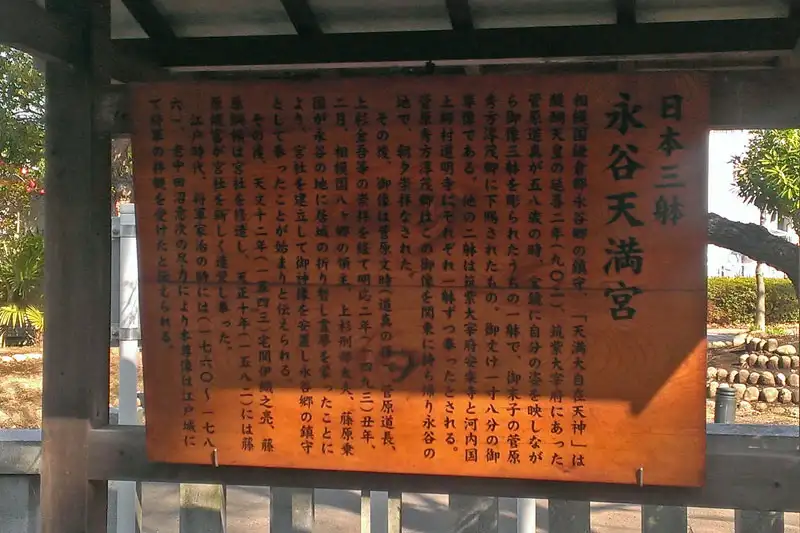 日本三躰
永谷天満宮
相模国鎌倉郡永谷郷の鎮守、「天満大自在天神」は
醍醐天皇の延喜二年(九〇二)、筑紫大宰府にあった
菅原道真が五八歳の時、宝鏡に自分の姿を映しなが
ら御像三躰を彫られたうちの一躰で、御末子の菅原
秀方淳茂卿に下賜されたもの。御丈け一寸八分の御
尊像である。他の二躰は筑紫大宰府安楽寺と河内国
土師村道明寺にそれぞれ一躰ずつ奉ったとされる。
菅原秀方淳茂卿はこの御像を関東に持ち帰り永谷の
地で、朝夕崇拝なされた。
その後、御像は菅原文時(道真の 菅原道長、
上杉金吾等の崇拝を経て明応二年(一四九三)丑年、
二月、相模国八ヶ郷の領主、上杉刑部太夫、藤原乗
国が永谷の地に居城の折り暫し霊夢を蒙ったことに
より、宮社を建立して御神像を安置し永谷郷の鎮守
として奉ったことが始まりと伝えられる。
その後、天文十二年(一五四三)宅間伊織之亮、藤
原 は宮社を修造し、天正十年(一五八二)には藤
原規富が宮社を新しく造営し奉った。
江戸時代、将軍家治の時には(一七六〇~一七八
六)、老中田沼意次の尽力により本尊像は江戸城に
て将軍の拝観を受けたと伝えられる。